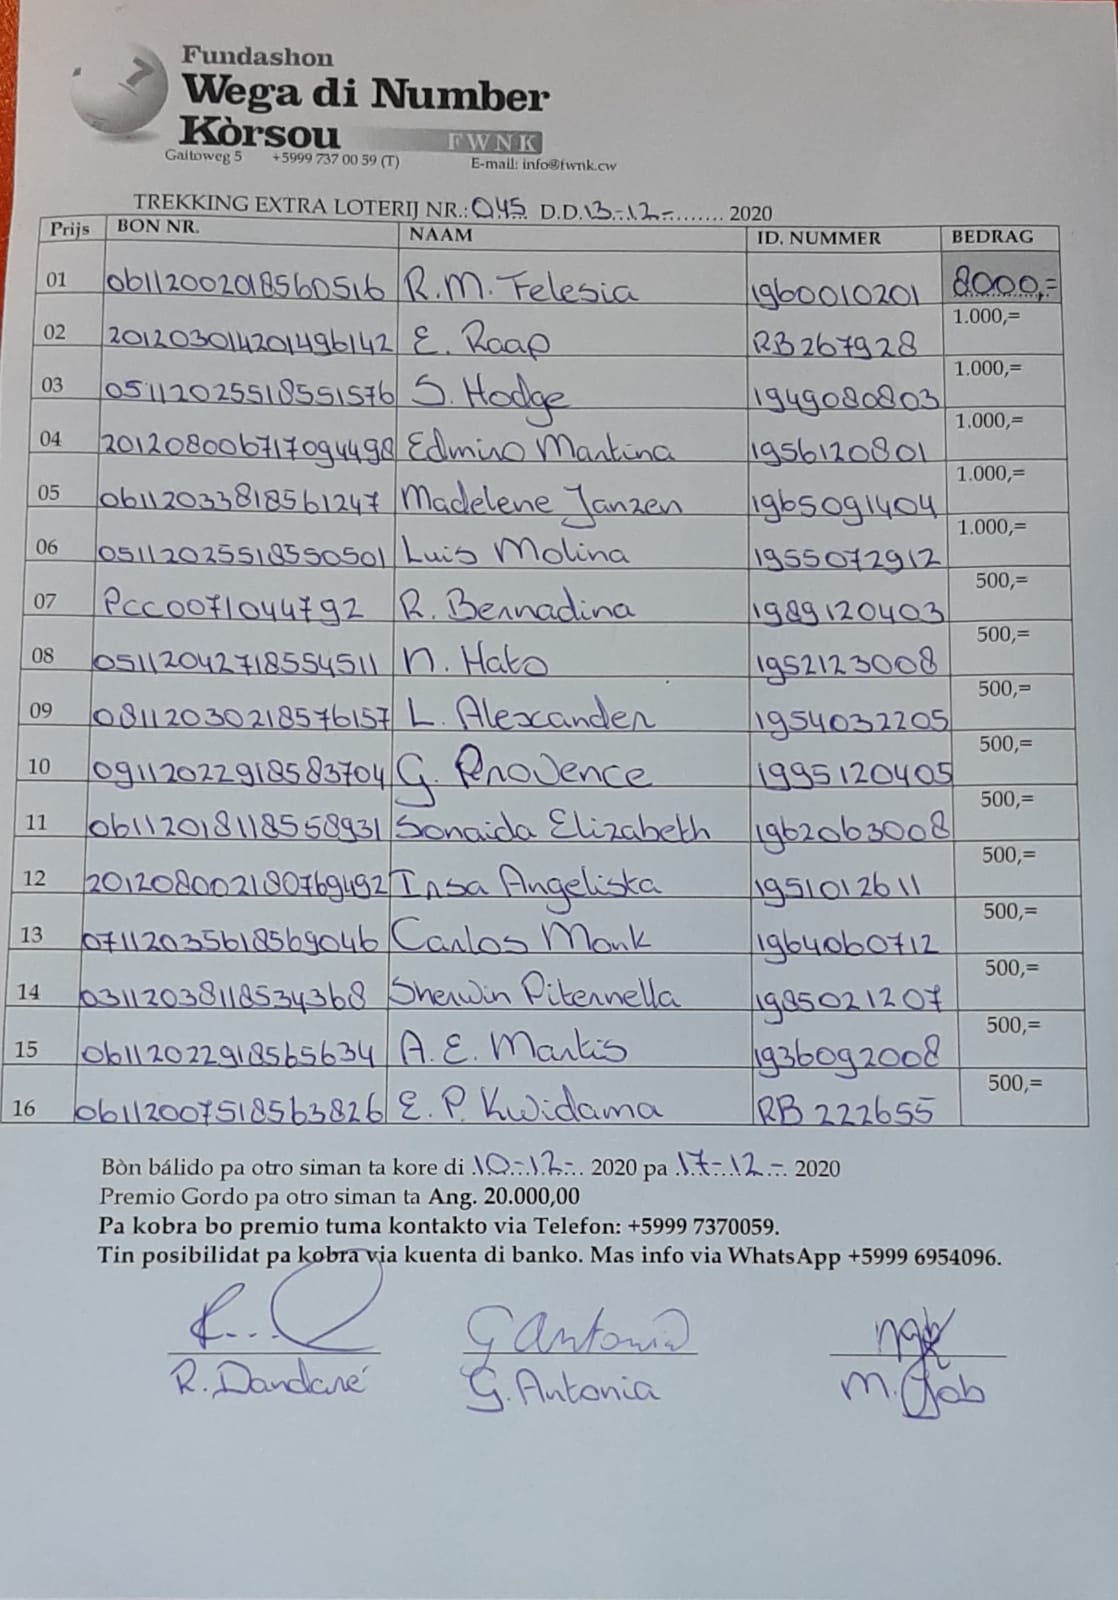 Fundashon
Wega di Number
Kòrsou FWNK
Gaitoweg 5 +5999 737 00 59 (T) E-mail: info@fwnk.cw
TREKKING EXTRA LOTERIJ NR.: 045 D.D. 13-12- 2020
Prijs BON NR. NAAM ID. NUMMER BEDRAG
01 06112002018560516 R.M. Felesia 1960010201 8000,=
02 201203014201496142 E. Raap RB267928 1.000,=
03 05112025518551576 S. Hodge 1949080803 1.000,=
04 201208006717094498 Edmiro Martina 1956120801 1.000,=
05 06112033818561247 Madelene Janzen 1965091404 1.000,=
06 05112025518550501 Luis Molina 1955072912 1.000,=
07 PCC0071044792 R. Bernadina 1989120403 500,=
08 05112042718554511 N. Hato 1952123008 500,=
09 08112030218576157 L. Alexander 1954032205 500,=
10 09112022918583704 G. Provence 1995120405 500,=
11 06112018118558931 Sonaida Elizabeth 1962063008 500,=
12 201208002180769492 Insa Angelista 1951012611 500,=
13 07112035618569046 Carlos Monk 1964060712 500,=
14 03112038118534368 Sherwin Piternella 1985021207 500,=
15 06112022918565634 A. E. Martis 1936092008 500,=
16 06112007518563826 E. P. Kwidama RB 222655 500,=
Bòn bálido pa otro siman ta kore di 10-12- 2020 pa 17-12- 2020
Premio Gordo pa otro siman ta Ang. 20.000,00
Pa kobra bo premio tuma kontakto via Telefon: +5999 7370059.
Tin posibilidat pa kobra via kuenta di banko. Mas info via WhatsApp +5999 6954096.
G Antonia
R. Dandaré G. Antonia M. Job